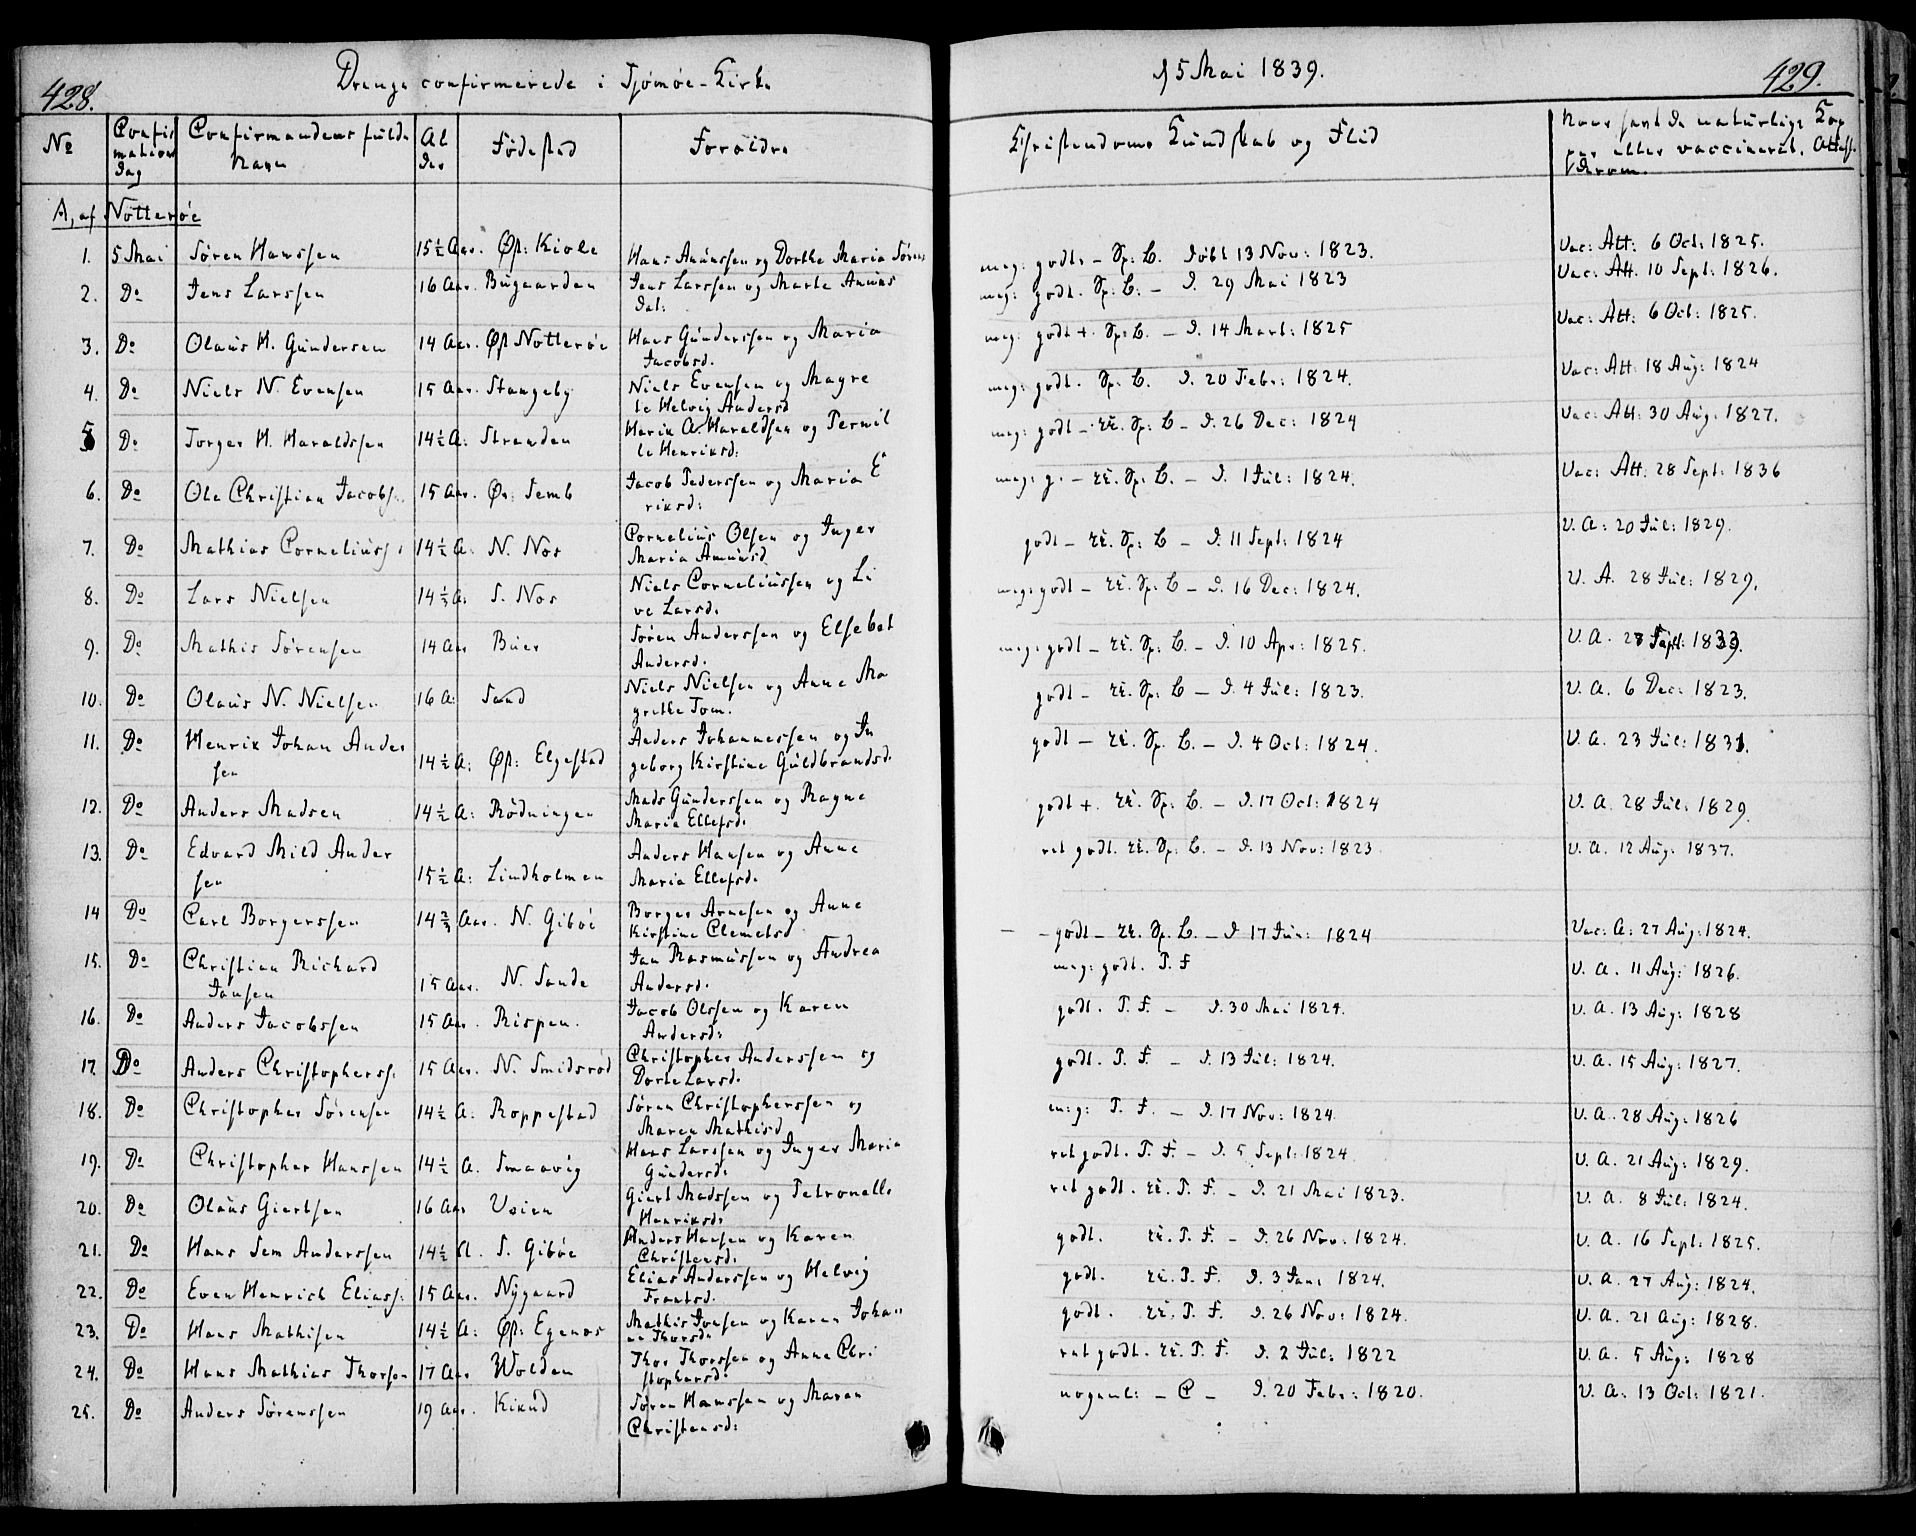 428. Drenge confirmerede i Tjömöe-Kirke d 5 Mai 1839. 429.
No | Confirmations Dag | Confirmandens fulde Navn | Alder | Fødested | Forældre | Christendoms Kundskab og Flid | havt de naturlige Kopper eller vaccineret. Attest derom.
A, af Nötteröe
1. 5 Mai Søren Hanssen 15½ Aar. Øst: Kiole Hans Amunssen og Dorthe Maria Sörens meg: godt. - Sp: L. Döbt 13 Nov: 1823. Vac: Att: 6 Oct: 1825.
2. Do Jens Larssen 16 Aar. Bugaarden Jens Larssen og Marte Amuns
dat: meg: godt. Sp: L. - D. 29 Mai 1823 Vac: Att. 10 Sept: 1826.
3. Do Olaus H. Gundersen 14 Aar. Øst Nötteröe Hans Gunderssen og Maria
Jacobsd. meg: godt +. Sp: L. - D. 14 Mart: 1825 Vac: Att: 6 Oct: 1825.
4. Do Niels N. Evensen 15 Aar. Stangeby Niels Evensen og Magre
te Helvig Andersd meg: godt. Sp: L. D. 20 Febr: 1824. Vac: Att: 18 Aug: 1824
5 Do Torger H. Haraldssen 14½ A: Stranden A. Haraldsen og Pernil
le Henriksd: meg: godt - Sp: L - D. 26 Dec: 1824 Vac: Att: 30 Aug. 1827.
6. Do Ole Christian Jacobs. 15 Aar. Semb Jacob Pederssen og Maria E
riksd: meg: g. - Sp: L. - D. 1 Jul: 1824. Vac: Att: 28 Sept: 1836
7. Do Mathias Corneliuss: 14½ A: N. Nes Cornelius Olsen og Inger
Maria Amunsd godt - Sp: L - D. 11 Sept: 1824 V. A: 20 Jul: 1829.
8. Do Lars Nielsen A: S. Nes Niels Corneliussen og Li
ve Larsd. meg: godt - Sp: L - D. 16 Dec: 1824. V. A. 28 Jul: 1829.
9. Do Mathis Sørensen 14 Aar Buer Søren Anderssen og Elsebet
Andersd. meg: godt - Sp: L. - D. 10 Apr: 1825. V. A. Sept:
10. Do Olaus N. Nielsen 16 A: Sand Niels Nielsen og Anne Ma
grethe Tom. godt - Sp: L - D. 4 Jul: 1823. V. A. 6 Dec: 1823.
11. Do Henrik Johan Ander
sen 14½ A: Øst: Elgestad Anders Johannessen og In
geborg Kirstine Guldbrandsd. godt - Sp: L. - D. 4 Oct: 1824. V. A. 23 Jul: 1831.
12. Do Anders Madsen 14½ A: Rödningen Mads Gunderssen og Ragne
Maria Ellefsd. godt +. Sp: L. - D. 17 Oct: 1824 V. A. 28 Jul: 1829.
13. Do Edvard Mild Ander
sen 15½ A: Lindholmen Anders Hansen og Anne
Maria Ellefsd. ret godt. Sp: L. - D. 13 Nov: 1823. V. A. 12 Aug. 1837.
14 Do Carl Borgerssen 14⅔ Aar. N. Giböe Borger Arnesen og Anne
Kirstine Clemetsd - godt - Sp: L. - D 17 1824 Vac: A: 27 Aug: 1824.
15. Do Christian Richard
Jansen 15 Aar. N. Sande Jan Rasmussen og Andrea
Andersd. meg: godt. T. F V. A. 11 Aug: 1826.
16. Do Anders Jacobssen 15 Aar. Rispen. Jacob Olssen og Karen
Andersd: godt. T. F. - D. 30 Mai 1824. V. A. 13 Aug: 1828
17. Do Anders Christopherss. 15 Aar. N. Smidsröd Christopher Anderssen og
Dorte Larsd. godt. T. F. - D. 13 Jul: 1824. V. A. 15 Aug: 1827.
18. Do Christopher Sørensen 14½ A: Roppestad Søren Christopherssen og
Maren Mathisd meg: T. F. - D. 17 Nov: 1824. V. A. 28 Aug: 1826
19. Do Christopher Hanssen 14½ A. Smaavig Hans Larssen og Inger Maria
Gundersd: ret godt. T. F. - D. 5 Sept: 1824 V. A. 21 Aug: 1829.
20. Do Olaus Giertsen 16 Aar Veien Giert Madssen og Petronelle
Henriksd: ret godt. T. F. - D. 21 Mai 1823. V. A. 8 Jul: 1824.
21. Do Hans Sem Anderssen 14½ A. S. Giböe Anders Hansen og Karen
Christensd: godt. T. F - D. 26 Nov. 1824. V. A. 16 Sept: 1825.
22. Do Even Henrich Eliass: 15 Aar. Nygaard Elias Anderssen og Helvig
Frantsd. godt. T. F. D. 3 Jan: 1824. V. A. 27 Aug: 1824.
23. Do Hans Mathisen 14½ A: Øst: Egenes Mathis Jonsen og Karen Johan
ne Thorsd. godt. T. F. D. 26 Nov: 1824. V. A. 21 Aug: 1828.
24. Do Hans Mathias Thorsen 17 Aar Wolden Thor Thorssen og Anne Chri
stophersd: ret godt. T. F. D. 2 Jul: 1822 V. A. 5 Aug: 1828
25. Do Anders Sørenssen 19 Aar. Søren Hanssen og Maren
Christensd: nogenl: - C - D. 20 Febr: 1820. V. A. 13 Oct: 1821.